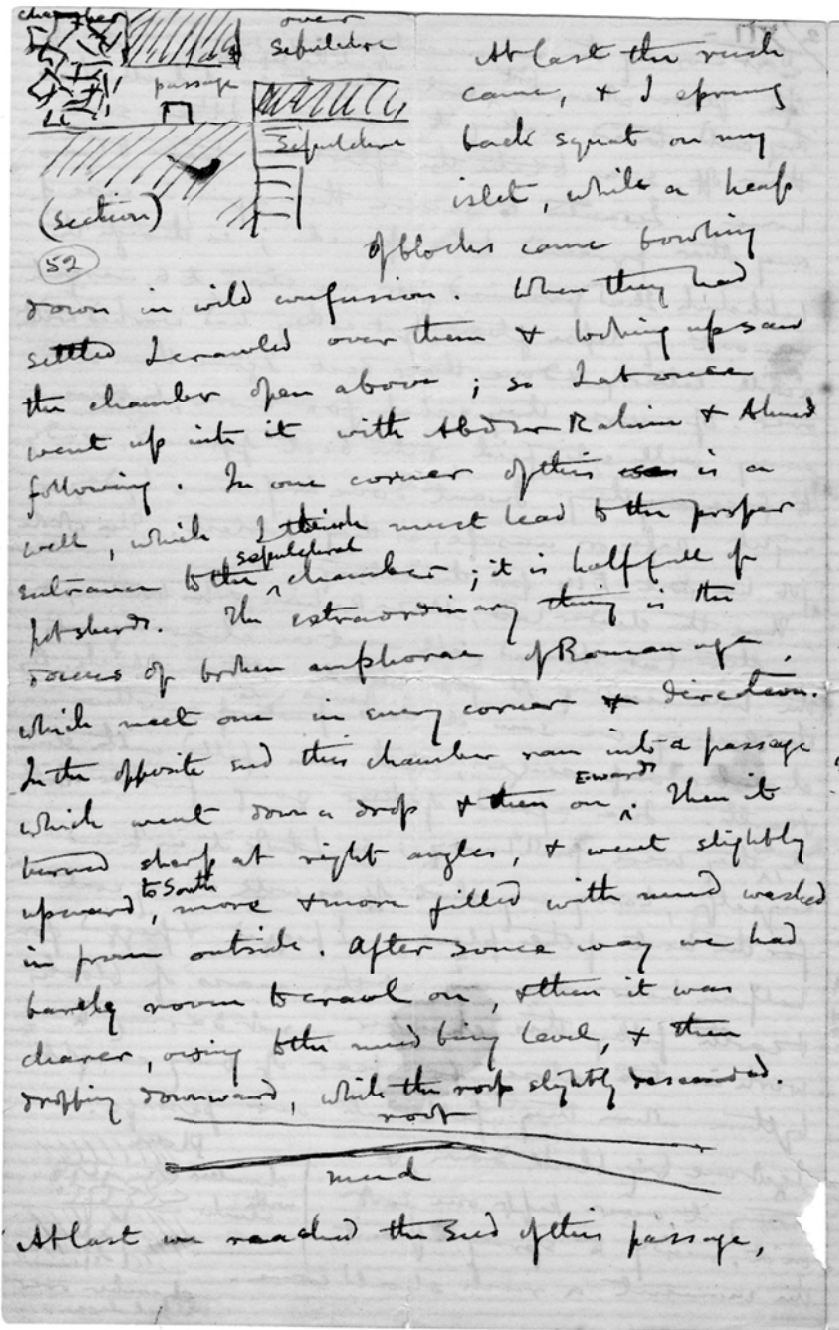 chamber
over
sepulchre
passage
sepulchre
(section)
52
At last the rush
came, & I sprung
back squat on my
islet, while a heap
of blocks came bowling
down in wild confusion. When they had
settled I crawled over them & looking up saw
the chamber open above; so I at once
went up into it with Abd er Rahim & Ahmed
following. In one corner of this is a
well, which I think must lead to the proper
entrance to the sepulchral chamber; it is half full of
potsherds. The extraordinary thing is the
masses of broken amphorae of Roman age,
which meet one in every corner & direction.
In the opposite end this chamber ran into a passage
which went down a drop & then on Ewards. Then it
turned sharp at right angles, & went slightly
upward to South, more & more filled with mud washed
in from outside. After some way we had
barely room to crawl on, & then it was
clearer, owing to the mud being level, & then
dropping downward, while the roof slightly descended.
roof
mud
At last we reached the end of this passage,